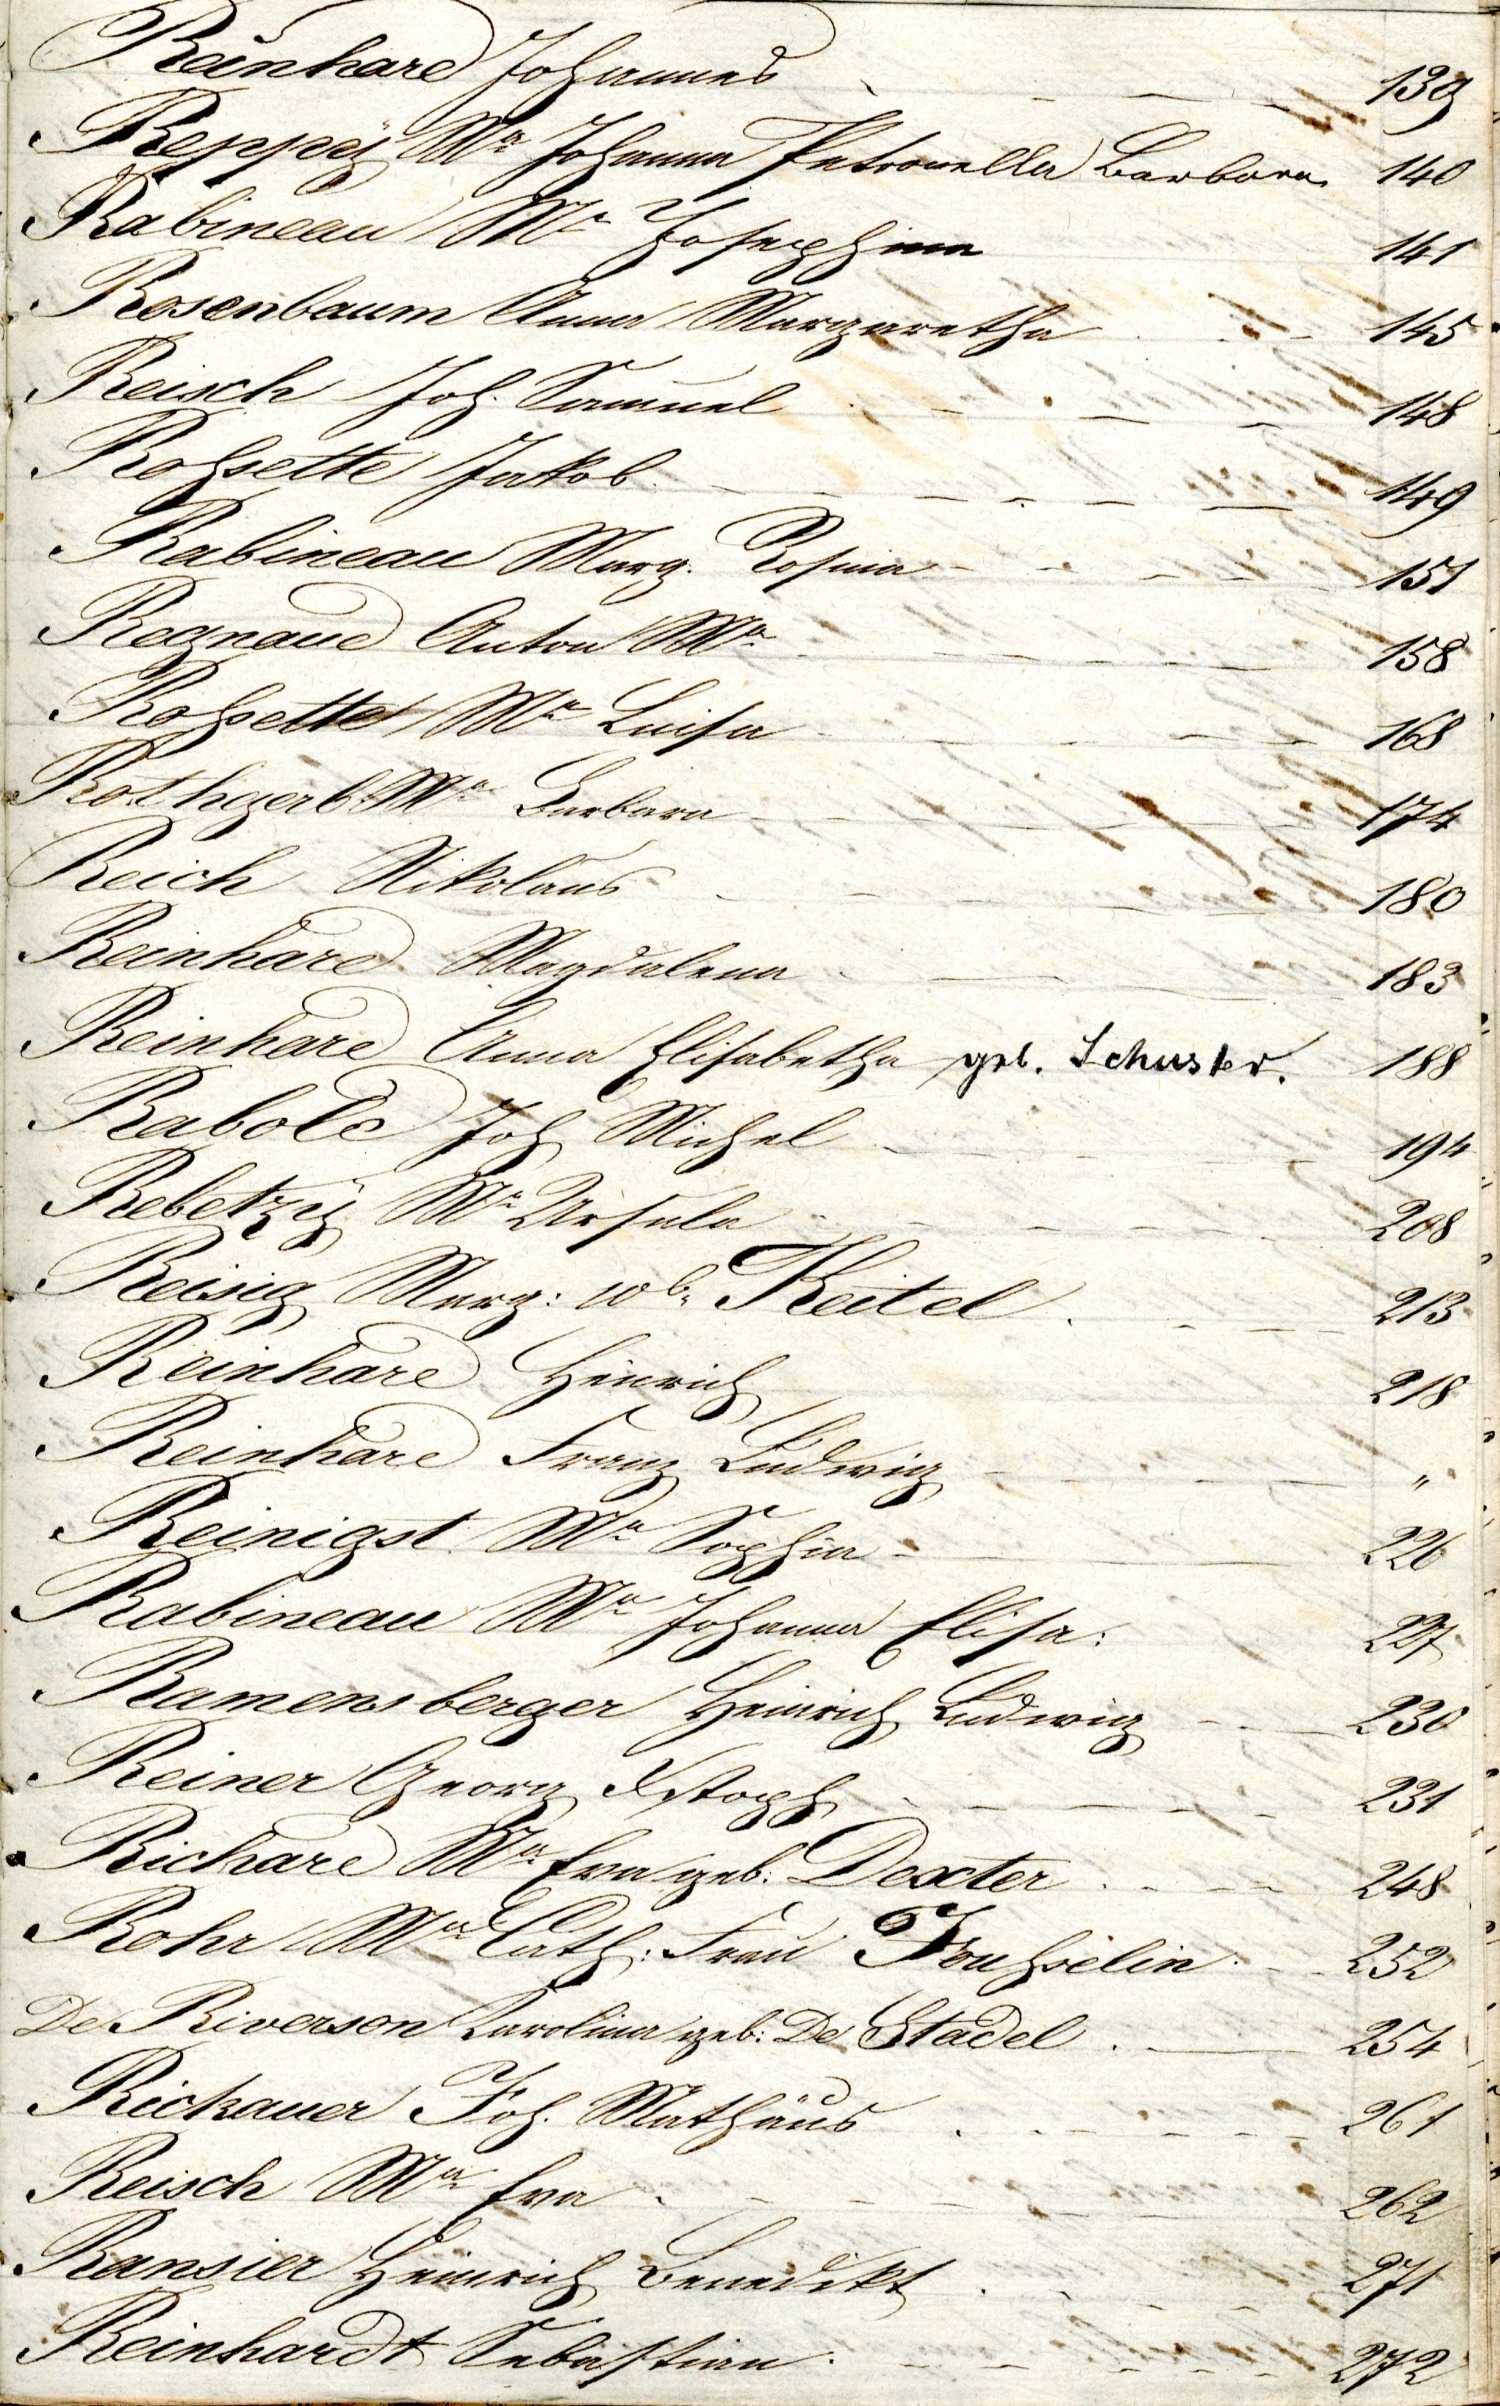 Reinhard Johannes 139
Reppeÿ Ma Johanna Petronella Barbara 140
Rabineau Ma Josephina 141
Rosenbaum Anna Margaretha 145
Reisch Joh. Samuel 148
Roßsette Jakob 149
Rabineau Marg. Rosina 151
Regnaud Anton Ma 158
Roßsette Ma Luisa 168
Rothgerb Ma Barbara 174
Reich Nikolaus 180
Reinhard Magdalena 183
Reinhard Anna Elisabetha geb. Schuster. 188
Rabold Joh Michel 194
Rebetzÿ Ma Ursula 208
Reisig Marg: wb. Keitel 213
Reinhard Heinrich 218
Reinhard Franz Ludwig "
Reinigst Ma Sophia 226
Rabineau Ma Johanna Elisa: 227
Ramensberger Heinrich Ludwig 230
Reiner Georg Xstoph 231
Richard Ma Eva geb: Dexter 248
Rohr Ma Cath: Frau 252
De Riverson Carolina geb: De Stadel 254
Rickauer Joh. Mathäus 261
Reisch Ma Eva 262
Ransier Heinrich Benedikt 271
Reinhardt Sebastian 272